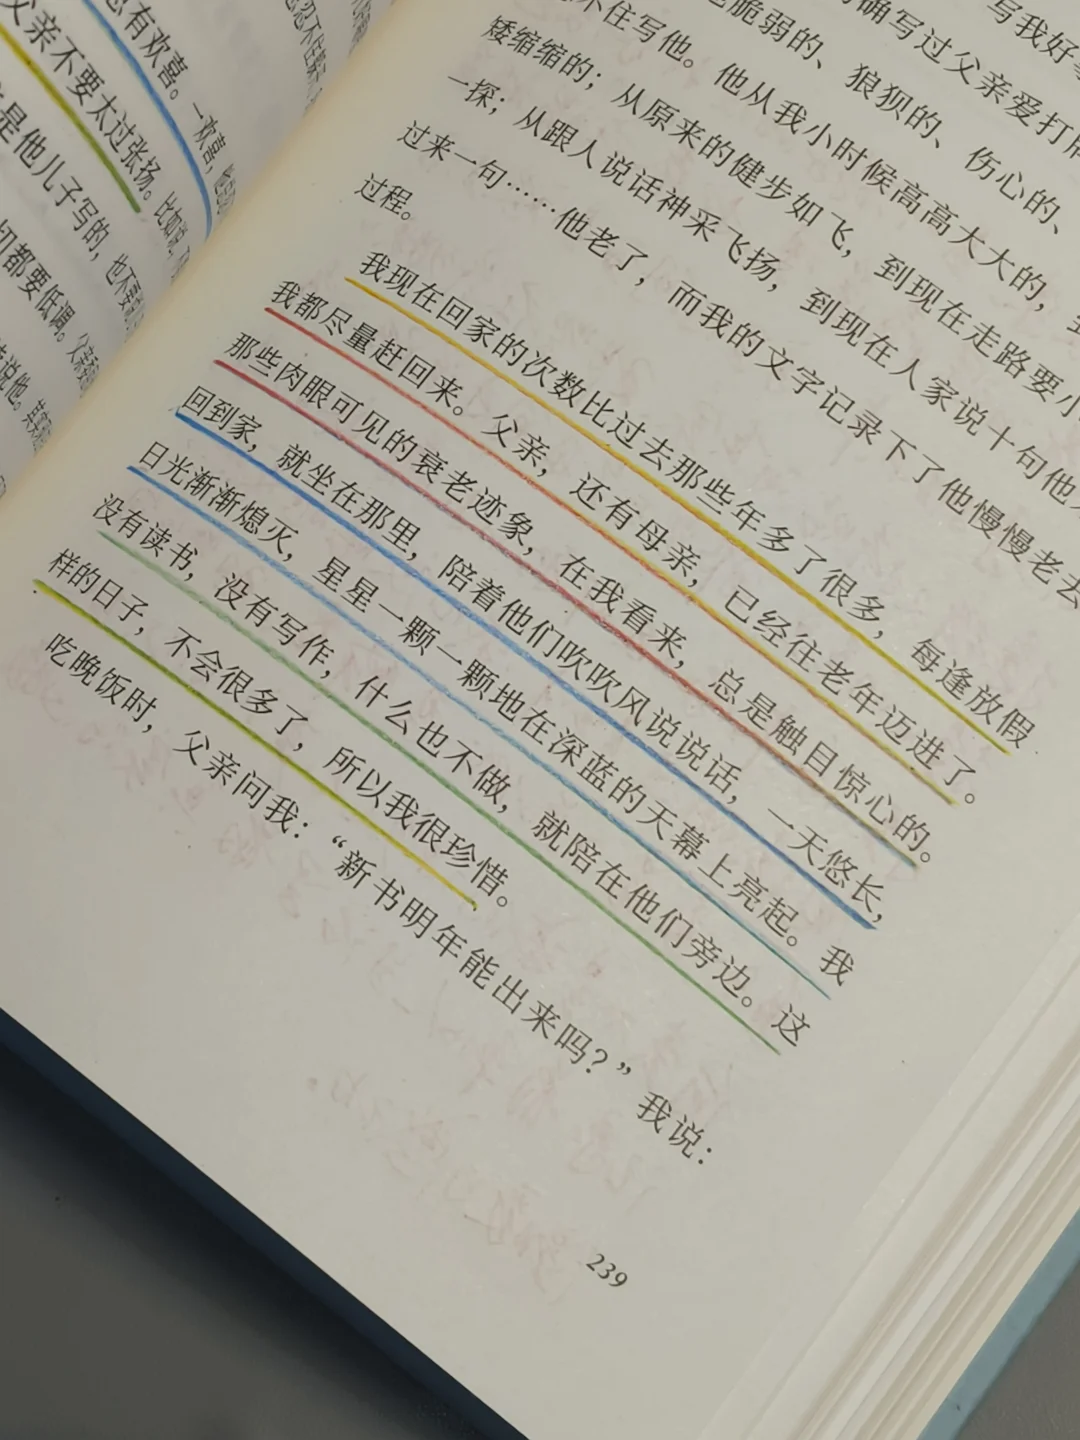 总有欢喜。一欢喜，
父亲不要太过张扬。比如说，
是他儿子写的，也不要
切都要低调。父亲
说他。
写我好
确写过父亲爱打牌
脆弱的、狼狈的、伤心的、
不住写他。他从我小时候高高大大的，
矮缩缩的；从原来的健步如飞，到现在走路要小
一探；从跟人说话神采飞扬，到现在人家说十句他
过来一句……他老了，而我的文字记录下了他慢慢老去
过程。
我现在回家的次数比过去那些年多了很多，每逢放假
我都尽量赶回来。父亲，还有母亲，已经往老年迈进了。
那些肉眼可见的衰老迹象，在我看来，总是触目惊心的。
回到家，就坐在那里，陪着他们吹吹风说说话，一天悠长，
日光渐渐熄灭，星星一颗一颗地在深蓝的天幕上亮起。我
没有读书，没有写作，什么也不做，就陪在他们旁边。这
样的日子，不会很多了，所以我很珍惜。
吃晚饭时，父亲问我：“新书明年能出来吗？”我说：
239